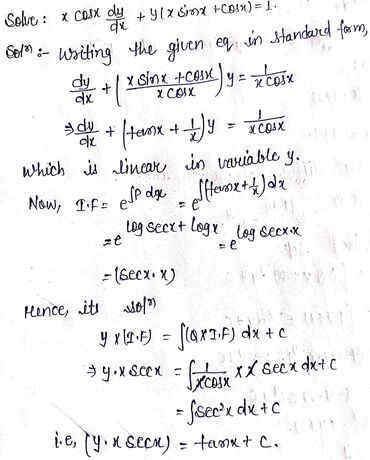 Solve: x cosx dy/dx + y(x sinx + cosx) = 1.
Solⁿ:- Writting the given eq in standard form,
dy/dx + (x sinx + cosx / x cosx) y = 1/x cosx
⇒ dy/dx + (tanx + 1/x) y = 1/x cosx
Which is linear in variable y.
Now, I.F = e^∫P dx = e^∫(tanx + 1/x) dx
= e^log secx + log x = e^log secx·x
= (secx·x)
Hence, its solⁿ)
y × (I.F) = ∫(Q × I.F) dx + c
⇒ y·x secx = ∫ 1/x cosx × x secx dx + c
= ∫sec²x dx + c
i.e, (y·x secx) = tanx + c.